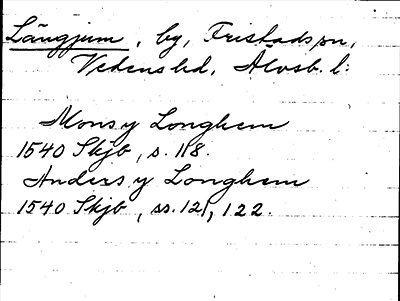 Längjum, by, Fristads sn,
Vedens hd, Älvsb. l:
Mons y Longhem
1540 Skjb, s. 118.
Anders y Longhem
1540 Skjb, ss. 121, 122.